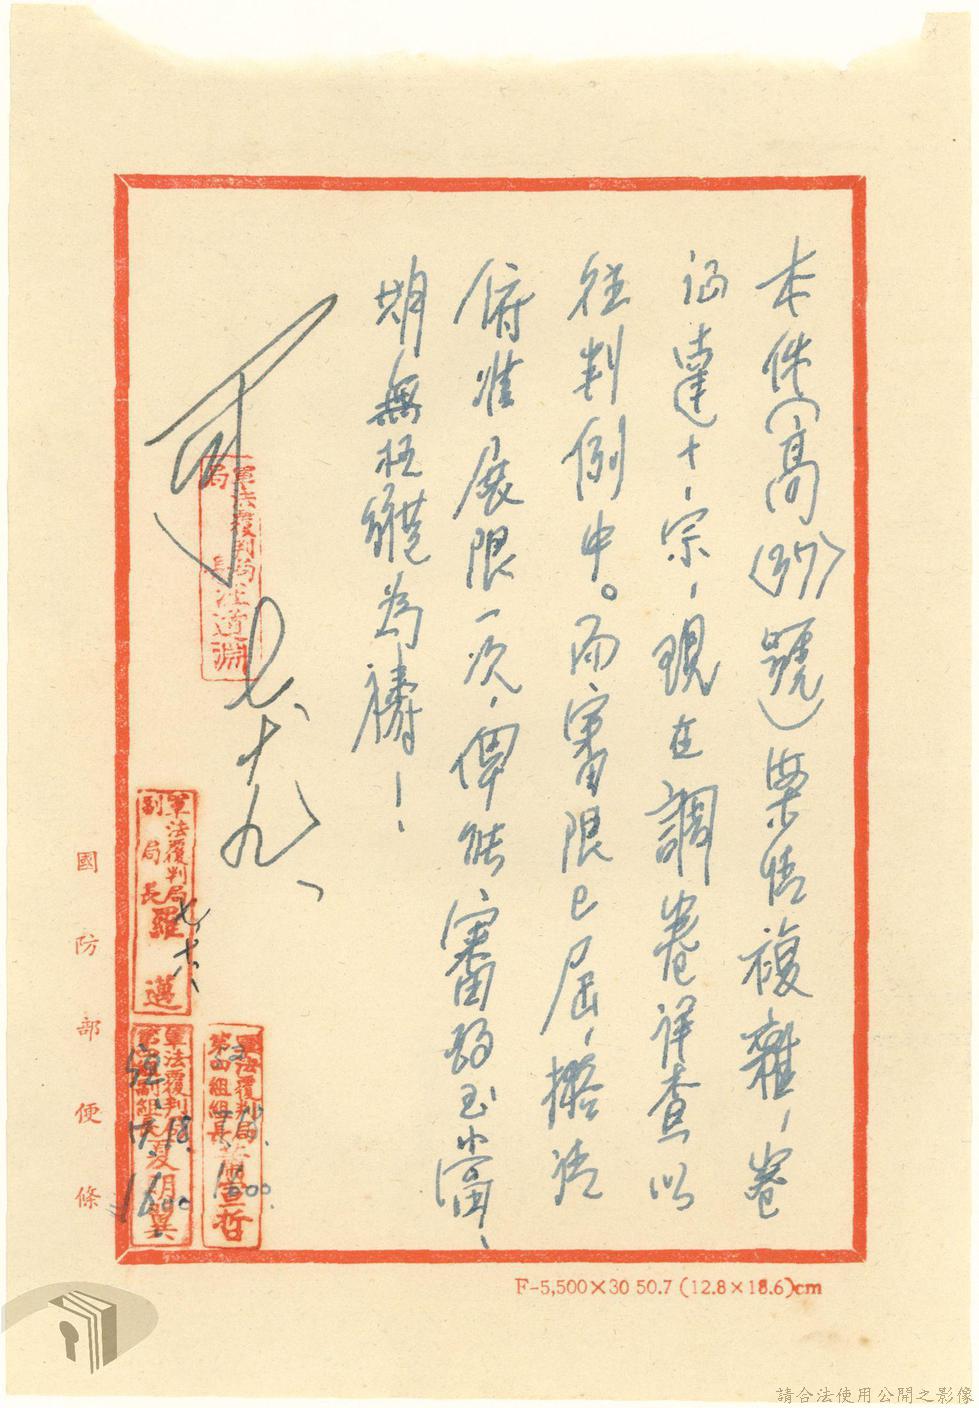 本件(高〈37〉號)案情複雜,卷
証達十宗,現在調卷詳查以
往判例中。而審限已屆,擬請
俯准展限一次,俾能審酌至當、
期無枉縱為禱!
可
七、十九、
軍法覆判局
局長汪道淵
軍法覆判局
副局長羅邁
軍法覆判局
副組長夏朝翼
1600
軍法覆判局
第四組組長
宣哲
國防部便條
F-5,500×30 50.7 (12.8×18.6)cm
請合法使用公開之影像